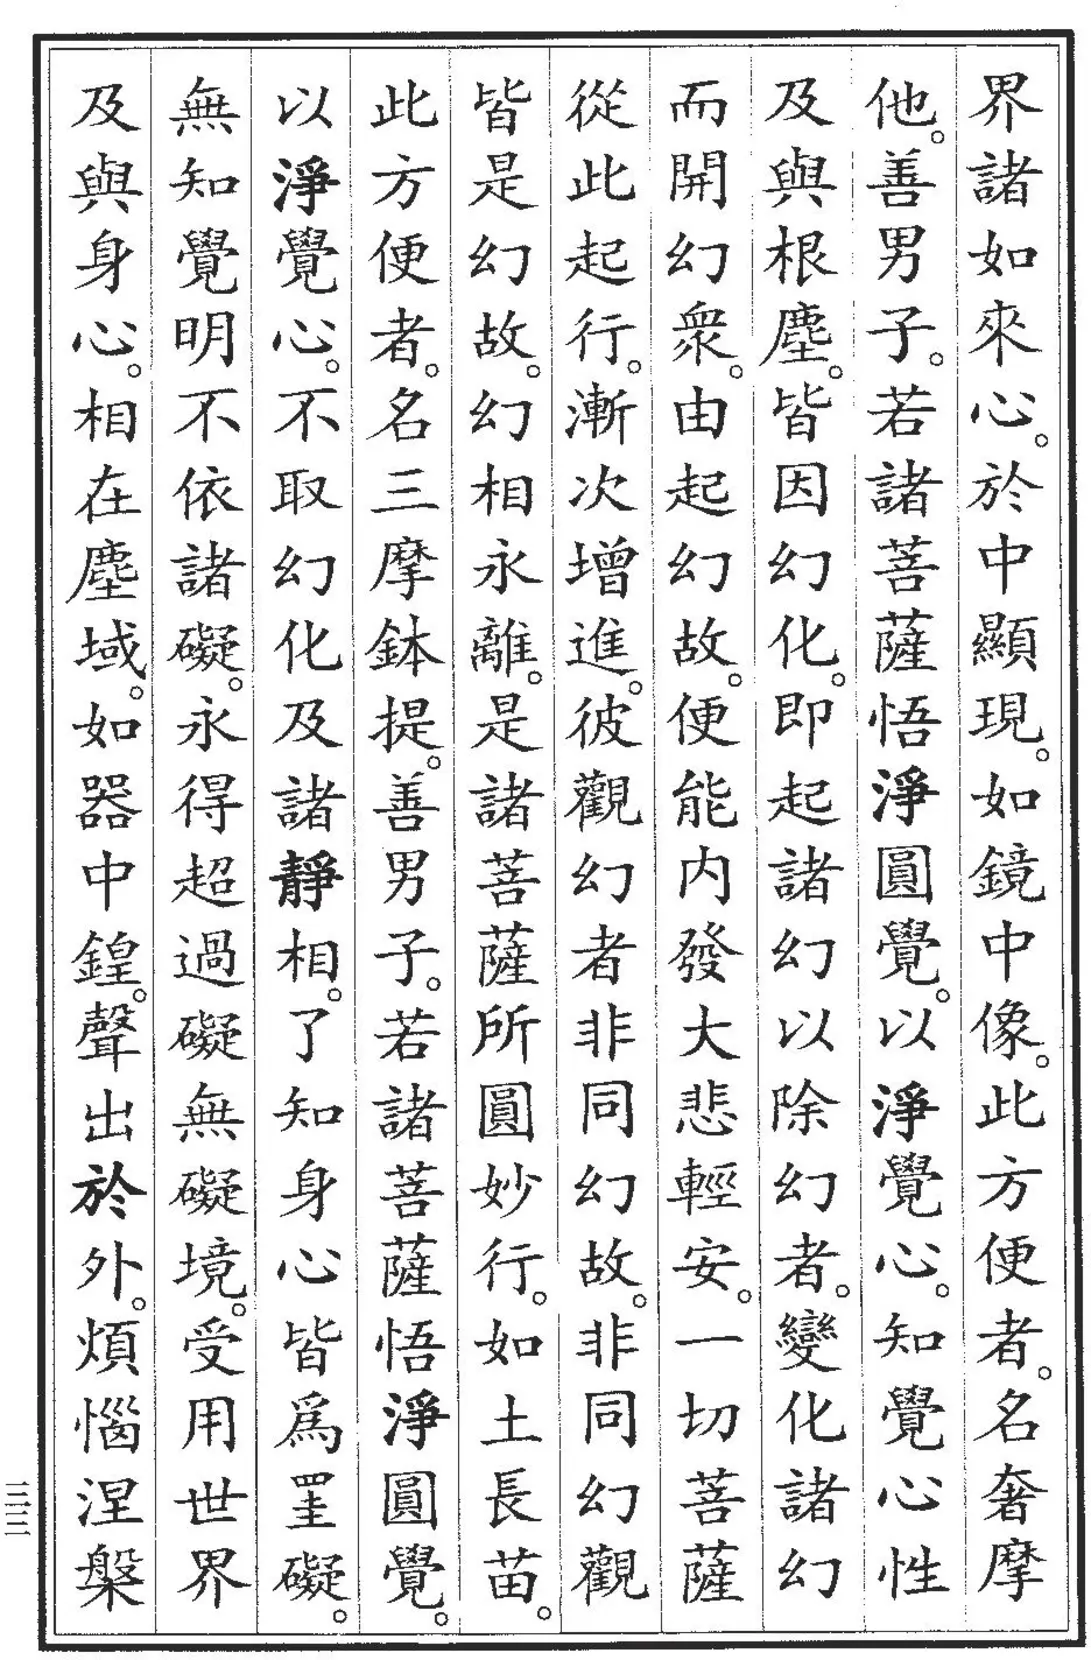 界諸如來心。於中顯現。如鏡中像。此方便者。名奢摩
他。善男子。若諸菩薩悟淨圓覺。以淨覺心。知覺心性
及與根塵。皆因幻化。即起諸幻以除幻者。變化諸幻
而開幻衆。由起幻故。便能内發大悲輕安。一切菩薩
從此起行。漸次增進。彼觀幻者非同幻故。非同幻觀
皆是幻故。幻相永離。是諸菩薩所圓妙行。如土長苗。
此方便者。名三摩鉢提。善男子。若諸菩薩悟淨圓覺。
以淨覺心。不取幻化及諸靜相。了知身心皆爲罣礙。
無知覺明不依諸礙。永得超過礙無礙境。受用世界
及與身心。相在塵域。如器中鍠。聲出於外。煩惱涅槃
三三